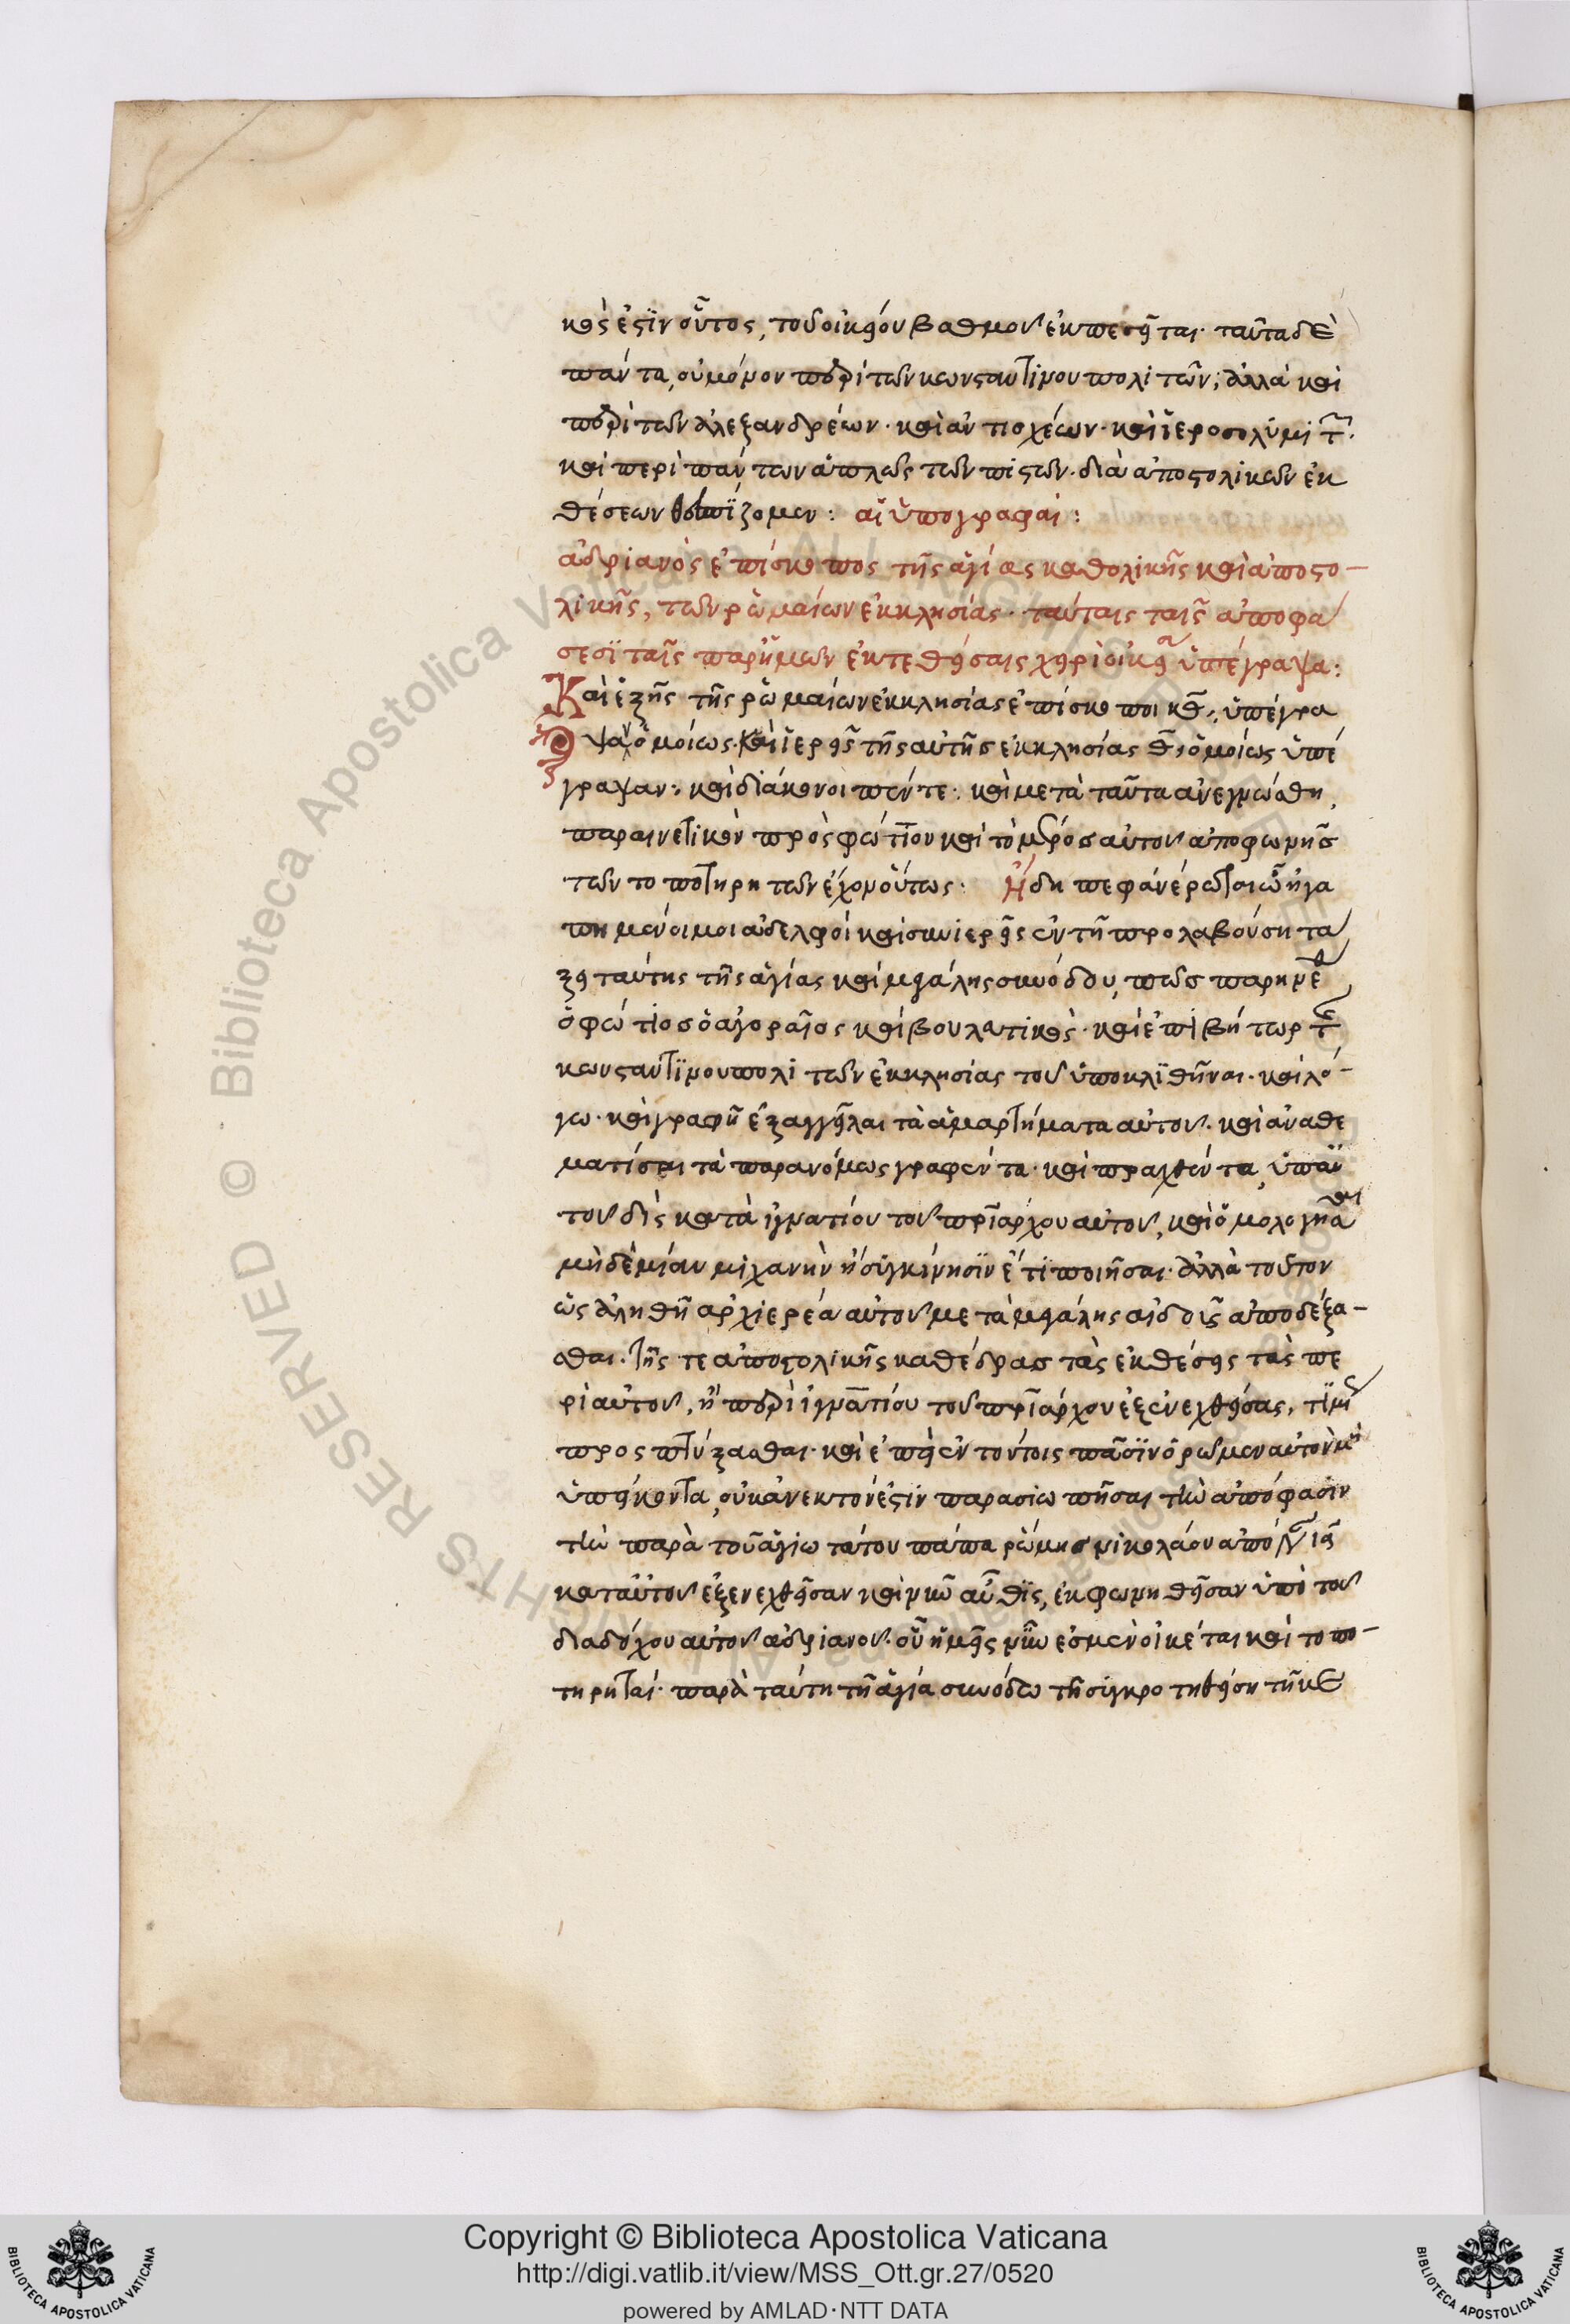 κὸς ἐστὶν οὗτος, τοῦ οἰκείου βαθμοῦ ἐκπεσεῖται· ταῦτα δὲ
πάντα, οὐ μόνον περὶ τῶν κωνσταντινουπολιτῶν, ἀλλὰ καὶ
περὶ τῶν ἀλεξανδρέων· καὶ ἀντιοχέων· καὶ ἱεροσολυμιτ῀·
καὶ περὶ πάντων ἁπλῶς τῶν πιστῶν· διὰ ἀποστολικῶν ἐκ
θέσεων θεσπίζομεν: αἱ ὑπογραφαί:
ἀδριανὸς ἐπίσκοπος τῆς ἁγίας καθολικῆς καὶ ἀποστο-
λικῆς, τῶν ῥωμαίων ἐκκλησίας· ταύταις ταῖς ἀποφά
σεσϊ ταῖς παρ' ἡμῶν ἐκτεθείσαις χειρὶ οἰκεία ὑπέγραψα:
Καὶ ἑξῆς τῆς ῥωμαίων ἐκκλησίας ἐπίσκοποι κθ· ὑπέγρα
ψαν ὁμοίως· καὶ ἱερεῖς τῆς αὐτῆς ἐκκλησίας θ· ὁμοίως ὑπέ
γραψαν: καὶ διάκονοι πέντε: καὶ μετὰ ταῦτα ἀνεγνώσθη,
παραινετικὸν πρὸς φώτϊον καὶ τὸ μέρος αὐτοῦ ἀποφωνησ
των τοποτηρητῶν ἔχον οὕτως: Ἤδη πεφανέρωται ὦ ἠγα
πημένοι μοι ἀδελφοὶ καὶ συνιερεῖς ἐν τῆ προλαβούση τά
ξει ταύτης τῆς ἁγίας καὶ μεγάλης συνόδου, πῶς παρηνέθ
ὁ φώτιος ὁ ἀγοραῖος καὶ βουλευτικὸς· καὶ ἐπιβήτωρ τ῀
κωνσταντϊνουπολιτῶν ἐκκλησίας τοῦ ὑποκλϊθῆναι· καὶ λό-
γω· καὶ γραφῆ ἐξαγγεῖλαι τὰ ἁμαρτήματα αὐτοῦ· καὶ ἀναθε
ματίσαι τὰ παρανόμως γραφέντα· καὶ πραχθέντα, ὑπ' αὐ
τοῦ δὶς κατὰ ἰγνατίου τοῦ πρϊάρχου αὐτοῦ, καὶ ὁμολογῆσαι
μηδὲ μίαν μιχανὴν ἢ σύγκινησϊν ἔτϊ ποιῆσαι· ἀλλὰ τοῦτον
ὡς ἀληθῆ ἀρχιερέα αὐτοῦ μετὰ μεγάλης αἰδοῦς ἀποδέξα-
σθαι· τῆς τε ἀποστολικῆς καθέδρας τὰς ἐκθέσεις τὰς πε
ρὶ αὐτοῦ, ἢ περὶ ἰγνατίου τοῦ πρϊάρχου ἐξενεχθείσας, τϊμίως
προσπτύξασθαι· καὶ ἐπεὶ ἐν τούτοις πᾶσϊν ὁρῶμεν αὐτὸν μὴ
ὑπείκοντα, οὐκ ἀνεκτόν ἐστὶν παρασιωπῆσαι τὴν ἀπόφασιν
τὴν παρὰ τοῦ ἁγιωτάτου πάπα ῥώμης νικολάου
κατ' αὐτοῦ ἐξενεχθεῖσαν καὶ νῦν αὖθϊς, ἐκφωνηθεῖσαν ὑπὸ τοῦ
διαδόχου αὐτοῦ ἀδριανοῦ· οὗ ἡμεῖς νῦν ἐσμὲν οἰκέται καὶ τοπο-
τηρηταί· παρὰ ταύτη τῆ ἁγία συνόδω τῆ συγκροτηθείση τῆ κε
Copyright © Biblioteca Apostolica Vaticana
http://digi.vatlib.it/view/MSS_Ott.gr.27/0520
powered by AMLAD·NTT DATA